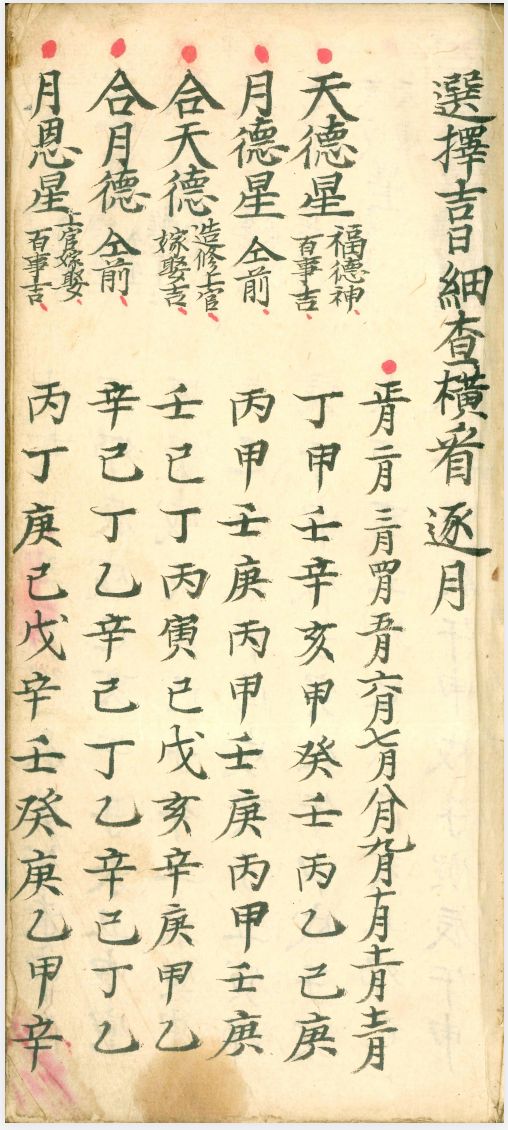 選擇吉日細查橫看逐月
正月二月三月四月五月六月七月八月九月十月十一月十二月
天德星 福德神百事吉 丁甲壬辛亥甲癸壬丙乙己庚
月德星 仝前 丙甲壬庚丙甲壬庚丙甲壬庚
合天德 造修上官嫁娶吉 壬已丁丙寅已戊亥辛庚甲乙
合月德 仝前 辛己丁乙辛己丁乙辛己丁乙
月恩星 上官嫁娶百事吉 丙丁庚己戊辛壬癸庚乙甲辛